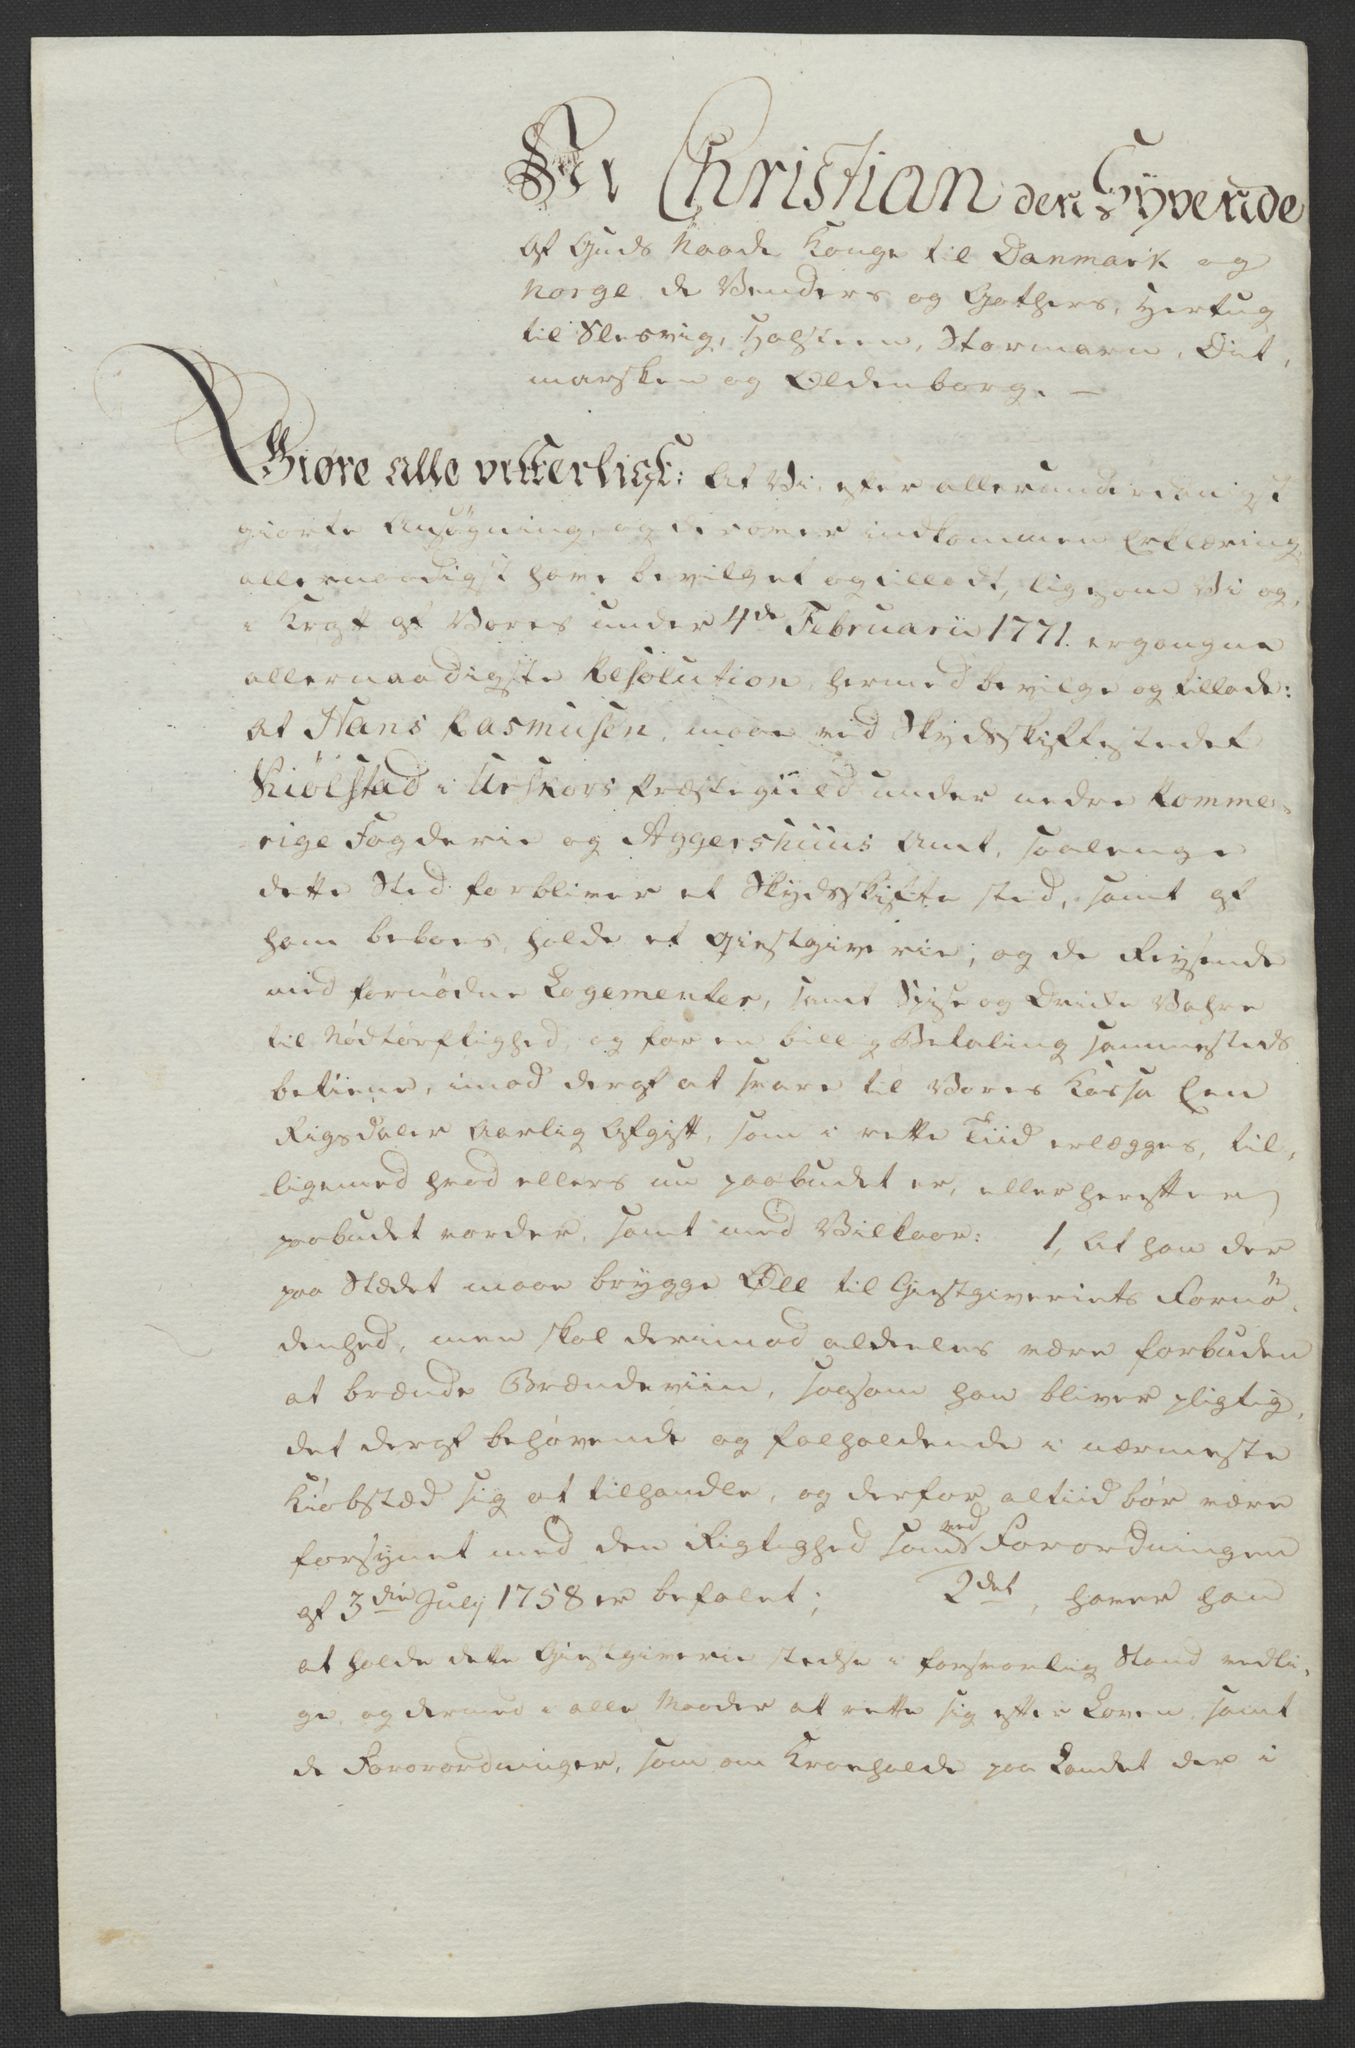 Vi Christian den Syvende
Af Guds Naade Konge til Danmark og
Norge de Venders og Gothers, Hertug
til Slesvig, Holsteen, Stormarn, Dit,
marsken og Oldenborg. —
Giøre alle vitterligt: At Vi, efter allerunderdanigst
giorte Ansøgning, og derover indkommen Erklæring,
allernaadigst have bevilget og tilladt, ligesom Vi og,
i Kraft af Vores under 4de Februarii 1771. ergangne
allernaadigste Resolution, hermed bevilge og tillade:
at Hans Rasmusen, maae ved Skydsskiftestedet
Kiölstad i Urskors Præstegield under nedre Romme-
rige Fogderie og Aggershuus Amt, saalenge
dette Sted forbliver et Skydsskifte sted, samt af
ham beboes, holde et Giestgiverie; og de Reysende
med fornødne Logementer, samt Spise og Dricke Vahre
til Nødtørftighed, og for en billig Betaling sammesteds
betiene, imod deraf at svare til Vores Kassa Een
Rigsdaler Aarlig Afgift, som i rette Tiid erlægges, til,
ligemed hvad ellers nu paabudet er, eller herefter
paabudet vorder, samt med Vilkaar: 1, At han der
paa Stædet maae brygge Øll til Giestgiveriets Fornø,
denhed, men skal derimod aldeeles være forbuden
at brænde Brændeviin, saasom han bliver pligtig,
det deraf behøvende og falholdende i nærmeste
Kiøbstæd sig at tilhandle, og derfor altiid bør være
forsynet med den Rigtighed som ved Forordningen
af 3die July 1758 er befalet; 2det, haver han
at holde dette Giestgiverie stedse i forsvarlig Stand vedli,
ge, og dermed i alle Maader at rette sig efter Loven, samt
de Forordninger, som om Kroehold paa Landet der i